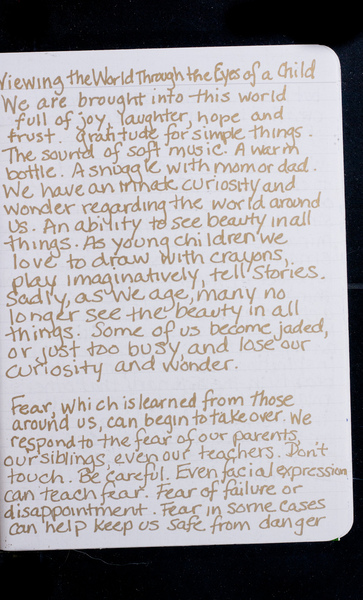 Viewing the World Through the Eyes of a Child
We are brought into this world
full of joy, laughter, hope and
trust. Gratitude for simple things.
The sound of soft music. A warm
bottle. A snuggle with mom or dad.
We have an innate curiosity and
wonder regarding the world around
us. An ability to see beauty in all
things. As young children we
love to draw with crayons,
play imaginatively, tell stories.
Sadly, as we age, many no
longer see the beauty in all
things. Some of us become jaded,
or just too busy, and lose our
curiosity and wonder.
Fear, which is learned from those
around us, can begin to take over. We
respond to the fear of our parents,
our siblings, even our teachers. Don't
touch. Be careful. Even facial expression
can teach fear. Fear of failure or
disappointment. Fear in some cases
can help keep us safe from danger